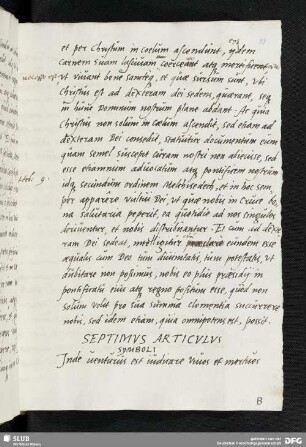 et per Christum in coelum ascendunt, quidem
carnem suam lasciviam coërceant atq mortificent
ut vivant bene sancteq, et quae sursum sunt, ubi
Christus est ad dexteram dei sedens, quaerant, seq
in hunc Dominum nostrum plane abdant. At quia
Christus non solum in coelum ascendit, sed etiam ad
dexteram Dei consedit, statuitur documentum eum
quam semel suscepit curam nostri non abiecisse, sed
esse etiamnum advocatum atq pontificem nostrum
Heb: 9.
idq secundum ordinem Melchisedech, et in hoc sem
per apparere vultui Dei, ut quae nobis in cruce bo
na salutaria peperit, ea quotidie ad nos singulos
deriventur, et nobis distribuantur. Et cum ad dex
teram Dei sedeat, eundem esse
aequalis cum Deo tum divinitatis, tum potestatis, ut
dubitare non possimus, nobis eo plus praesidii in
pontificatu eius atq regno positum esse, quod non
solum velit pro sua summa clementia succurrere
nobis, sed idem etiam, quia omnipotens est, possit.
SEPTIMUS ARTICULUS
SYMBOLI
Inde venturus est iudicare vivos et mortuos
B
SLUB
DFG